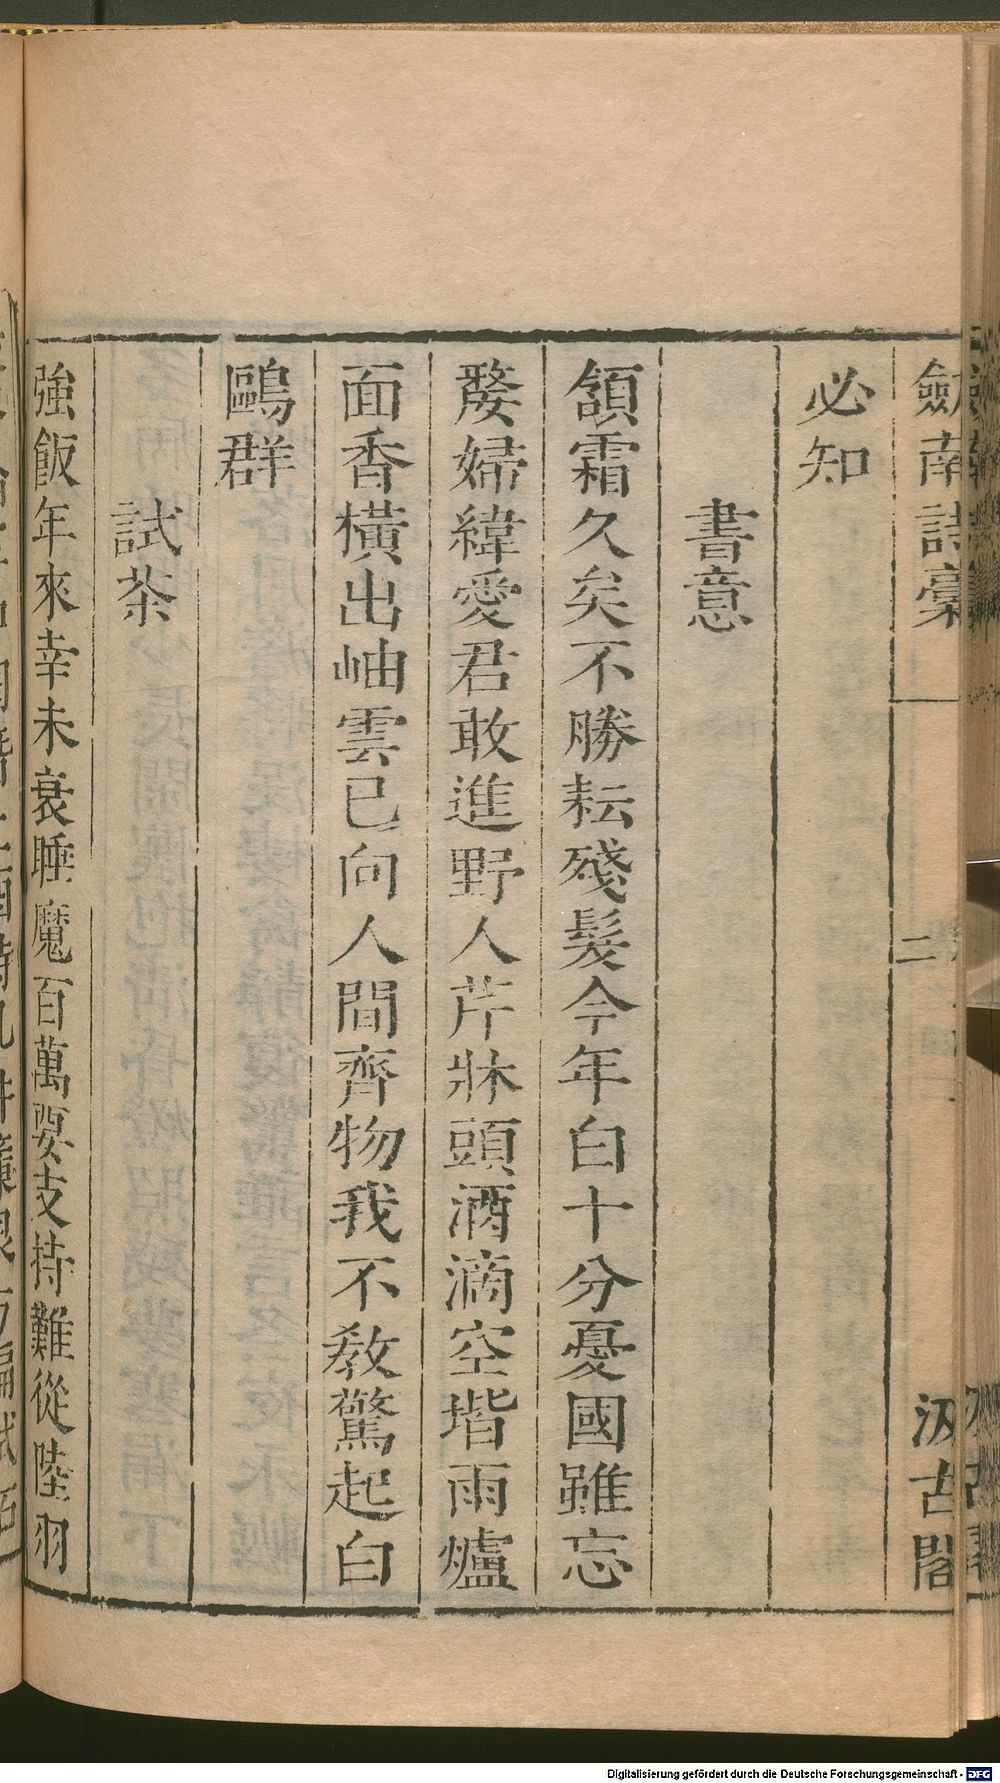 劔南詩稾
二
汲古閣
必知
書意
頷霜久矣不勝耘殘髮今年白十分憂國雖忘
嫠婦緯愛君敢進野人芹牀頭酒滴空堦雨爐
面香橫出岫雲已向人間齊物我不教驚起白
鷗群
試茶
強飯年來幸未衰睡魔百萬要支持難從陸羽
Digitalisierung gefördert durch die Deutsche Forschungsgemeinschaft - DFG